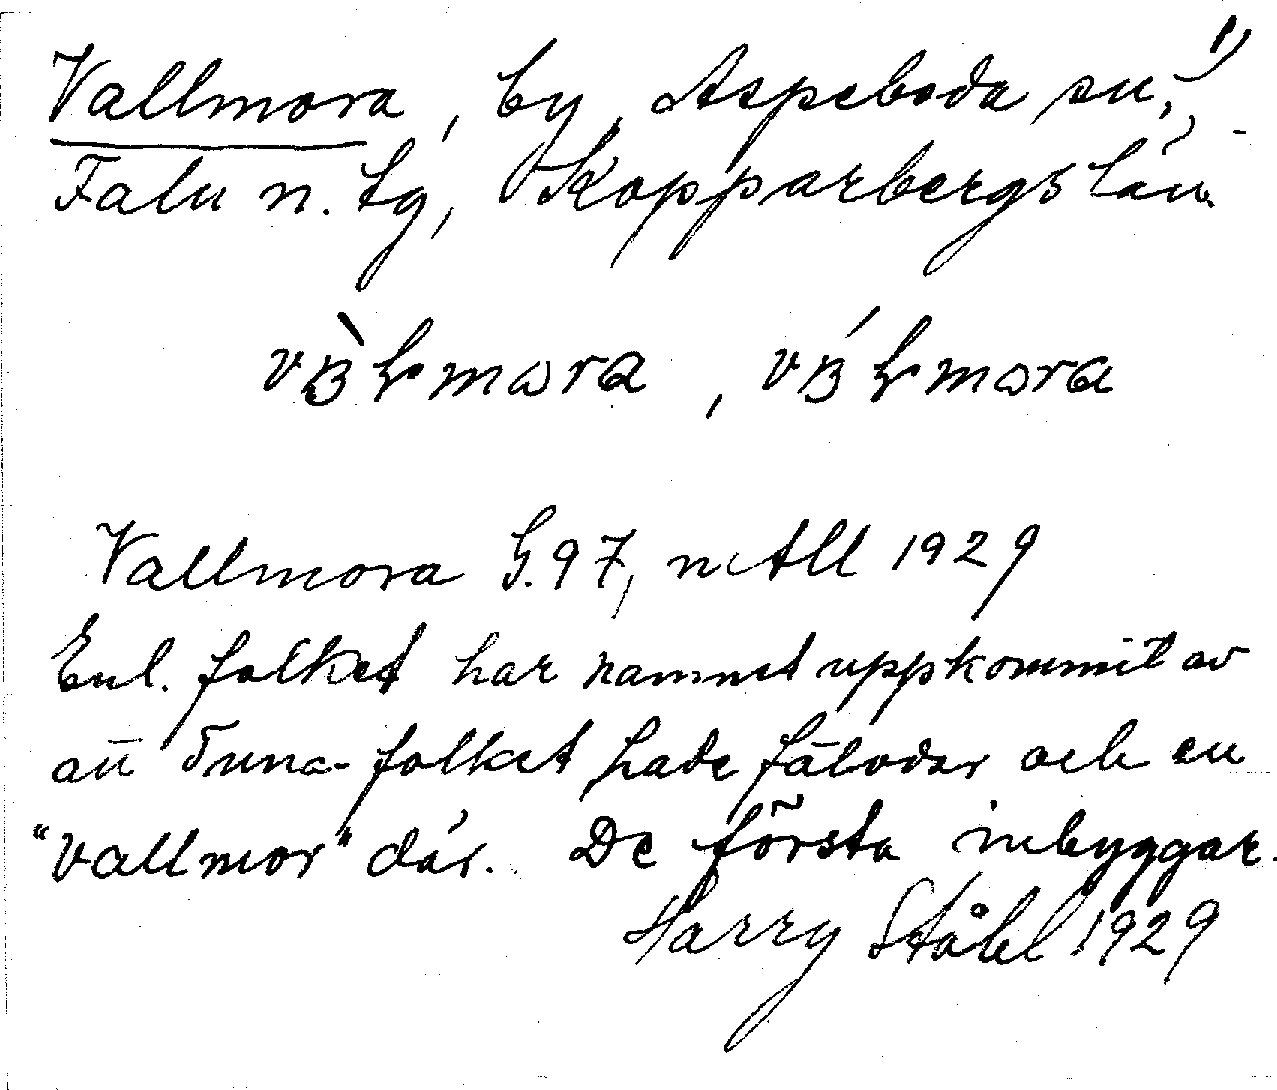 1)
Vallmora, by, Aspeboda sn,
Falu n. tg, Kopparbergs län.
Vallmora G.97, mtll 1929
Enl. folket har namnet uppkommit av
att Tuna-folket hade fäbodar och en
"vallmor" där. De första inbyggar-
Harry Ståhl 1929